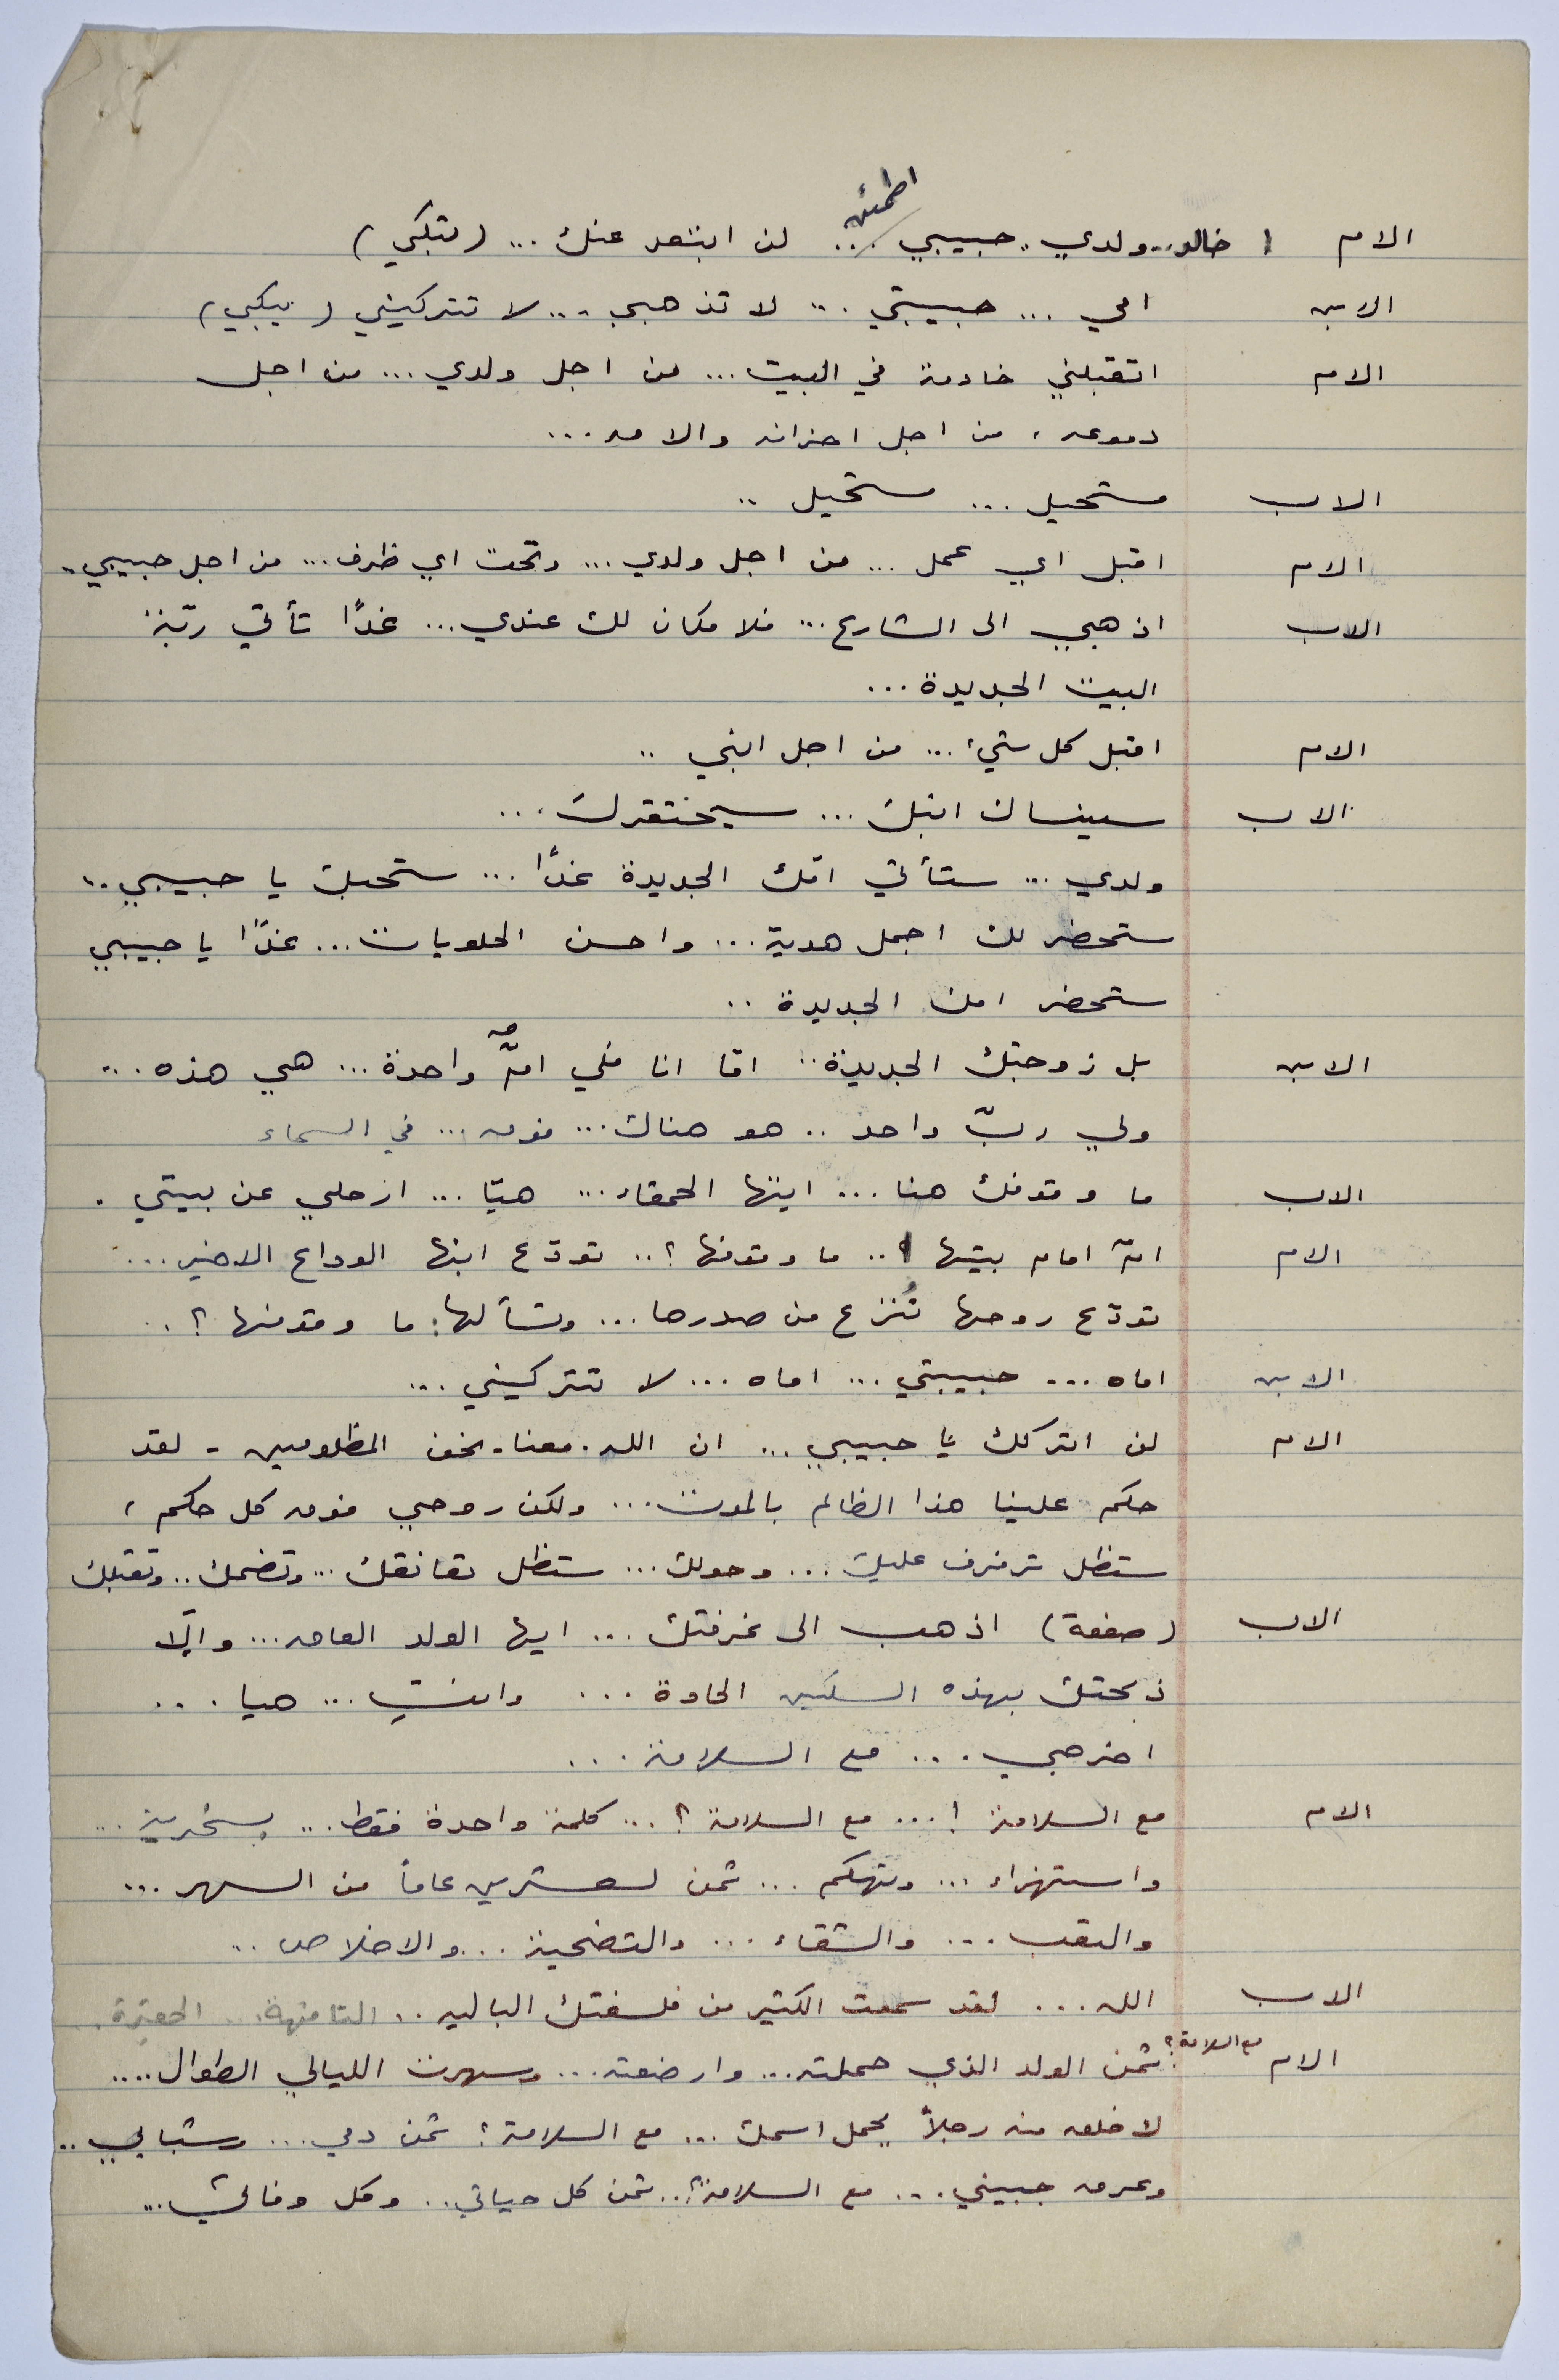 اطمئن
الام خالد.. ولدي.. حبيبي ... لن ابتعد عنك ... (تبكي)
الابن امي ... حبيبتي ... لا تذهبي ... لا تتركيني (يبكي)
الام اتقبلني خادمة في البيت ... من اجل ولدي ... من اجل
دموعه ، من اجل احزانه والامه ...
الاب مستحيل ... مستحيل ..
الام اقبل اي عمل ... من اجل ولدي ... وتحت اي ظرف ... من اجل حبيبي ..
الاب اذهبي الى الشارع ... فلا مكان لك عندي ... غدًا تأتي ربّة
البيت الجديدة ...
الام اقبل كل شيء ... من اجل ابني ..
الاب سينساك ابنك ... سيحتقرك ...
ولدي ... ستأتي امّك الجديدة غدًا ... ستحبك يا حبيبي ..
ستحضر لك اجمل هدية ... واحسن الحلويات ... غدًا يا حبيبي
ستحضر امك الجديدة ..
الابن بل زوجتك الجديدة .. امّا انا فلي امٌّ واحدة ... هي هذه ...
ولي ربّ واحد .. هو هناك ... فوق ... في السماء
الاب ما وقوفك هنا ... ايتها الحمقاء ... هيّا ... ارحلي عن بيتي .
الام امّ امام بيتها ! .. ما وقوفها ؟ .. تودّع ابنها الوداع الاخير ...
تودّع روحها تُنزع من صدرها ... وتسألها: ما وقوفها ؟ ..
الابن اماه ... حبيبتي ... اماه ... لا تتركيني ...
الام لن اتركك يا حبيبي ... ان الله . معنا - نحن المظلومين - لقد
حكم علينا هذا الظالم بالموت ... ولكن روحي فوق كل حكم ،
ستظل ترفرف عليك ... وحولك ... ستظل تعانقك ... وتضمك .. وتقبلك
الاب (صفعة) اذهب الى غرفتك ... ايها الولد العاق ... والّا
ذبحتك بهذه السكين الحادة ... وانتِ ... هيا ...
اخرجي ... مع السلامة ...
الام مع السلامة ! ... مع السلامة ؟ ... كلمة واحدة فقط ... بسخرية ...
واستهزاء ... وتهكم ... ثمن لعشرين عاماً من السهر ...
والتعب ... والشقاء ... والتضحية ... والاخلاص ..
الاب الله ... لقد سمعت الكثير من فلسفتك الباليه .. التافهة ... الحقيرة .
الام مع السلامة ؟ ثمن الولد الذي حملته ... وارضعته ... وسهرت الليالي الطوال ....
لاخلق منه رجلاً يحمل اسمك ... مع السلامة ؟ ثمن دمي ... وشبابي ..
وعرق جبيني ... مع السلامة ؟ .. ثمن كل حياتي .. وكل وفائي ...